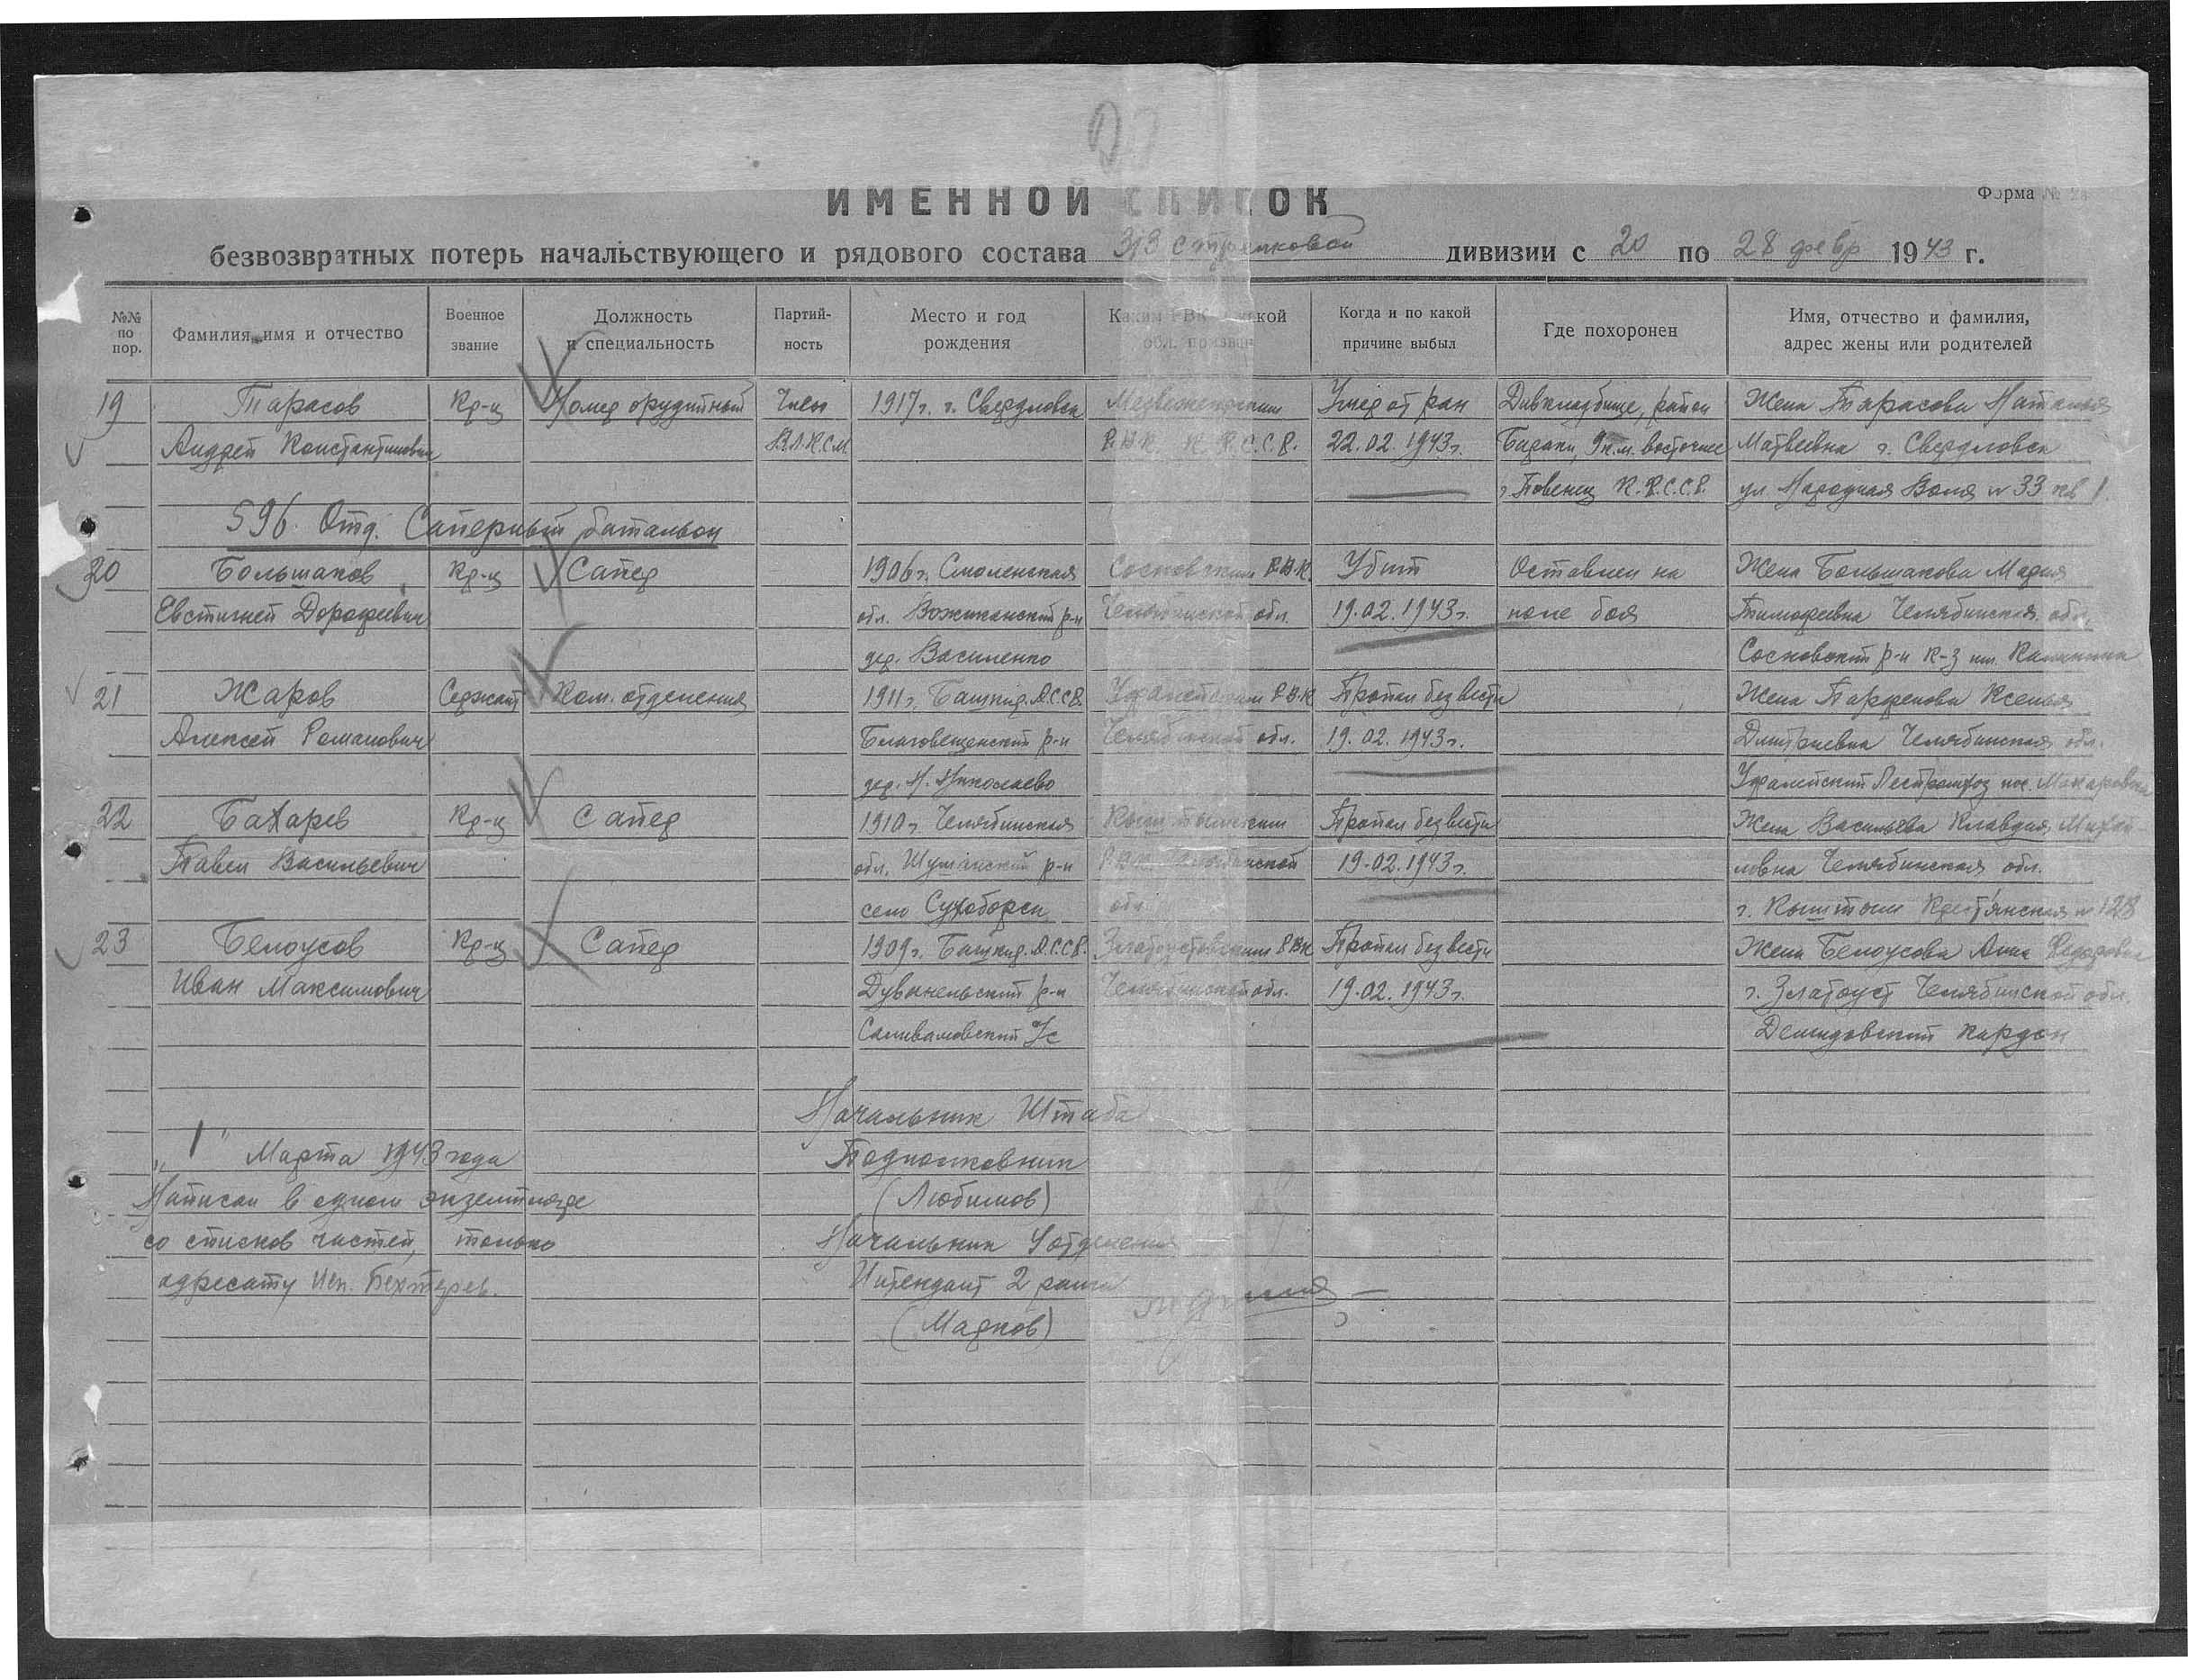 ИМЕННОЙ СПИСОК
Форма №
безвозвратных потерь начальствующего и рядового состава 313 стрелковой дивизии с 20 по 28 февр 1943 г.
№№ по пор.
Фамилия, имя и отчество
Военное звание
Должность и специальность
Партий-ность
Место и год рождения
Каким РВК какой обл. призван
Когда и по какой причине выбыл
Где похоронен
Имя, отчество и фамилия, адрес жены или родителей
19 Тарасов Кр-ц Номер орудийный Член 1917 г. г. Свердловск Медвежегорским Умер от ран Дивкладбище, район Жена Тарасова Наталья
Андрей Константинович ВЛКСМ Р.В.К. К.Ф.С.С.Р. 22.02.1943г. Бараки, 9 к.м. восточнее Матвеевна г. Свердловск
г. Повенец К.Ф.С.С.Р. ул Народная Воля № 33 кв 1
596 Отд. Саперный батальон
20 Большаков Кр-ц Сапер 1906 г. Смоленская Сосновским Р.В.К. Убит Оставлен на Жена Большакова Мария
Евстигней Дорофеевич обл. р-н Челябинской обл. 19.02.1943г. поле боя Тимофеевна Челябинская обл.
дер. Василенко Сосновский р-н к-з им. Калинина
21 Жаров Сержант Ком. отделения 1911 г. Башкир. А.С.С.Р. Уфалейским Р.В.К Пропал без вести Жена Парфенова Ксенья
Алексей Романович Благовещенский р-н Челябинской обл. 19.02.1943г. Дмитриевна Челябинская обл.
дер. Н. Николаево Уфалейский Лестранхоз пос.
22 Бахарев Кр-ц Сапер 1910 г. Челябинская Кыштымским Пропал без вести Жена Васильева Клавдия Михай-
Павел Васильевич обл. р-н Р.В.К. Челябинской 19.02.1943г. ловна Челябинская обл.
село обл. г. Кыштым Крестьянская № 128
23 Белоусов Кр-ц Сапер 1909 г. Башкир. А.С.С.Р. Златоустовским Р.В.К Пропал без вести Жена Белоусова Анна Федоровна
Иван Максимович р-н Челябинской обл. 19.02.1943г. г. Златоуст Челябинской обл.
с/с Демидовский кардон
Начальник Штаба
"1" Марта 1943 года Подполковник
Написан в одном экземпляре (Любимов)
со списков частей, только Начальник 4 отделения
адресату Исп. Бехтерев. Интендант 2 ранга
(Марков)